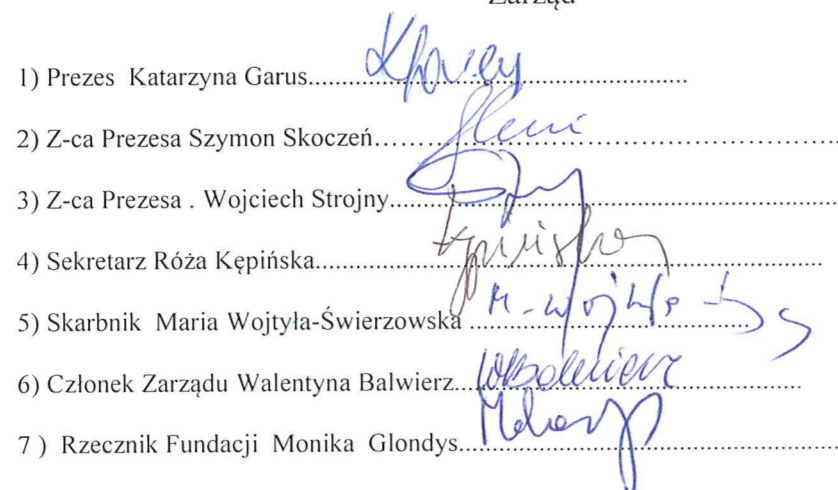 Zarząd
1) Prezes Katarzyna Garus......................................................
2) Z-ca Prezesa Szymon Skoczeń......................................................
3) Z-ca Prezesa . Wojciech Strojny......................................................
4) Sekretarz Róża Kępińska......................................................
5) Skarbnik Maria Wojtyła-Świerzowska ......................................................
6) Członek Zarządu Walentyna Balwierz......................................................
7 ) Rzecznik Fundacji Monika Glondys......................................................